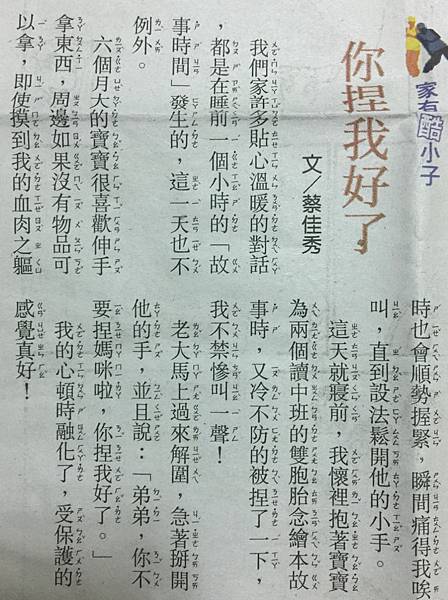 家有酷小子
你捏我好了
文／蔡佳秀
我們家許多貼心溫暖的對話
，都是在睡前一個小時的「故
事時間」發生的，這一天也不
例外。
六個月大的寶寶很喜歡伸手
拿東西，周邊如果沒有物品可
以拿，即使摸到我的血肉之軀
時也會順勢握緊，瞬間痛得我唉
叫，直到設法鬆開他的小手。
這天就寢前，我懷裡抱著寶寶
為兩個讀中班的雙胞胎念繪本故
事時，又冷不防的被捏了一下，
我不禁慘叫一聲！
老大馬上過來解圍，急著掰開
他的手，並且說：「弟弟，你不
要捏媽咪啦，你捏我好了。」
我的心頓時融化了，受保護的
感覺真好！